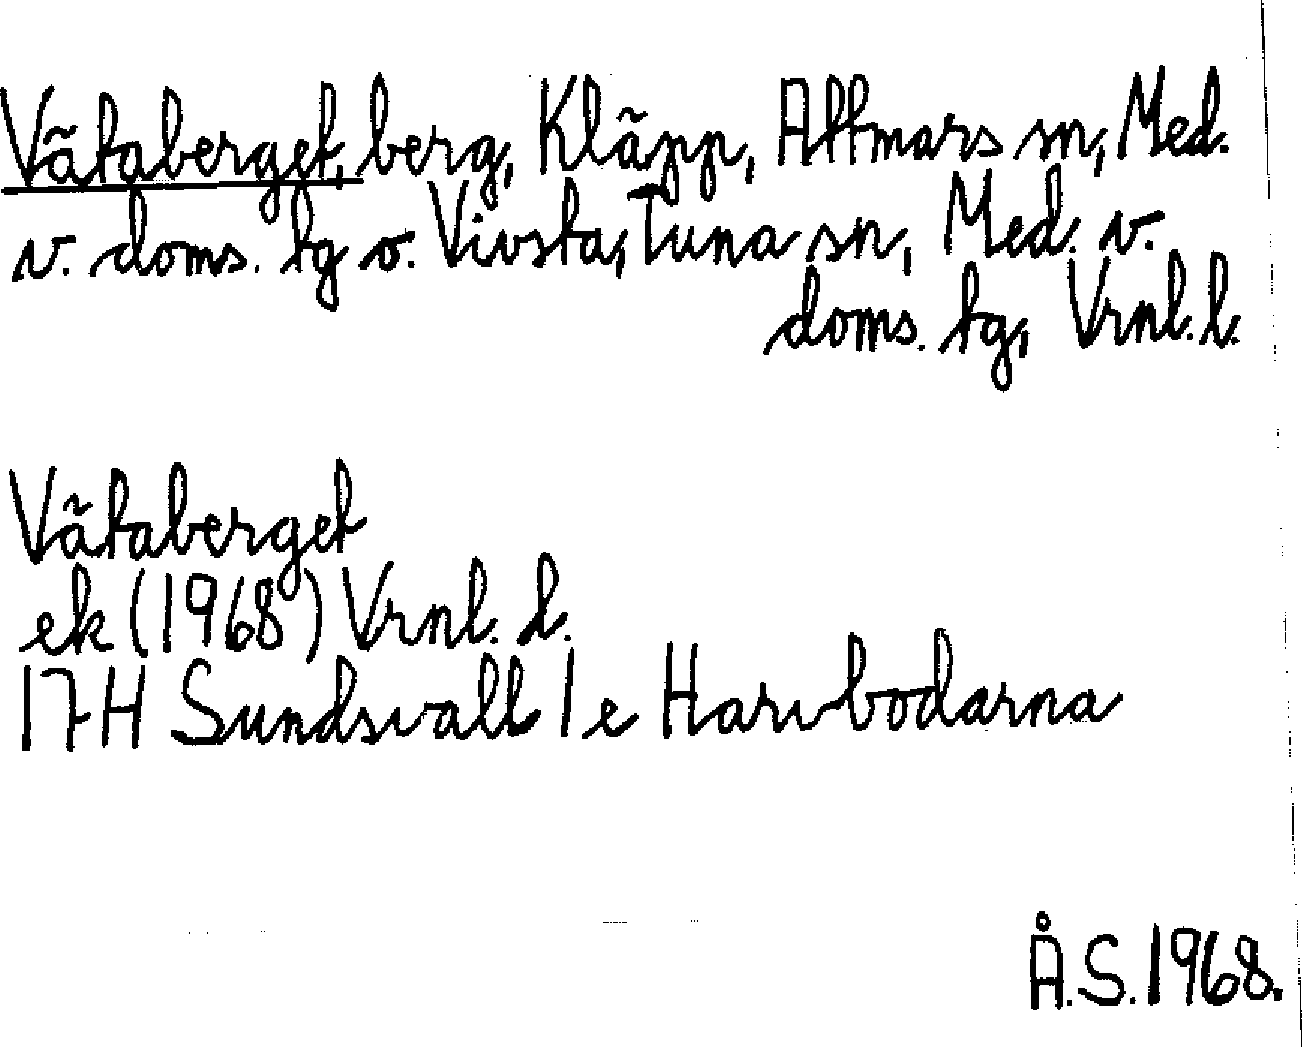 Vätaberget, berg, Kläpp, Attmars sn, Med.
v. doms. tg o. Vivsta, Tuna sn, Med. v.
doms. tg, Vrnl. l.
Vätaberget
ek (1968) Vrnl. l.
17H Sundsvall 1 e Harvbodarna
Å.S. 1968.